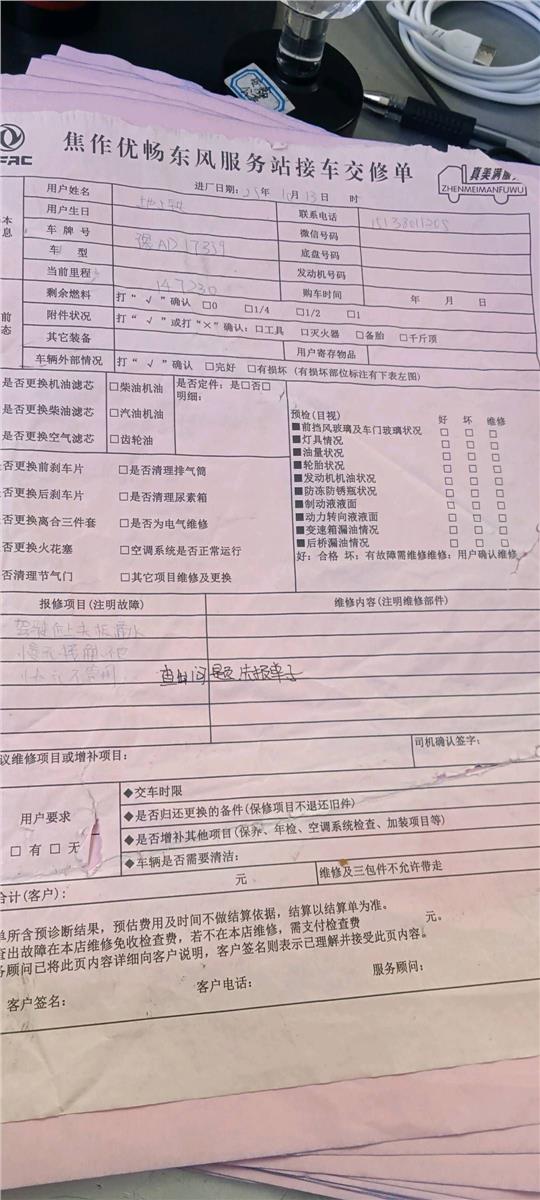 焦作优畅东风服务站接车交修单
真美满服
ZHENMEIMANFUWU
FAC
进厂日期：25年10月13日 时
用户姓名 联系电话 15138011205
用户生日 微信号码
车牌号 豫AD17339 底盘号码
车型 发动机号码
当前里程 147230 购车时间 年 月 日
剩余燃料 打“√”确认 □0 □1/4 □1/2 □1
附件状况 打“√”或打“×”确认：□工具 □灭火器 □备胎 □千斤顶
其它装备 用户寄存物品
车辆外部情况 打“√”确认 □完好 □有损坏（有损坏部位标注有下表左图）
是否更换机油滤芯 □柴油机油 是否定件：是□否□
明细：
是否更换柴油滤芯 □汽油机油
是否更换空气滤芯 □齿轮油
预检(目视) 好 坏 维修
■前挡风玻璃及车门玻璃状况 □ □ □
■灯具情况 □ □ □
■油量状况 □ □ □
■轮胎状况 □ □ □
■发动机机油状况 □ □ □
■防冻防锈瓶状况 □ □ □
■制动液液面 □ □ □
■动力转向液液面 □ □ □
■变速箱漏油情况 □ □ □
■后桥漏油情况 □ □ □
好：合格 坏：有故障需维修维修：用户确认维修
是否更换前刹车片 □是否清理排气筒
是否更换后刹车片 □是否清理尿素箱
否更换离合三件套 □是否为电气维修
否更换火花塞 □空调系统是否正常运行
否清理节气门 □其它项目维修及更换
报修项目(注明故障) 维修内容(注明维修部件)
查出问题先报单子
议维修项目或增补项目： 司机确认签字：
用户要求
□有□无
◆交车时限
◆是否归还更换的备件(保修项目不退还旧件)
◆是否增补其他项目(保养、年检、空调系统检查、加装项目等)
◆车辆是否需要清洁：
合计(客户)： 元 维修及三包件不允许带走
单所含预诊断结果，预估费用及时间不做结算依据，结算以结算单为准。
查出故障在本店维修免收检查费，若不在本店维修，需支付检查费 元。
务顾问已将此页内容详细向客户说明，客户签名则表示已理解并接受此页内容。
客户签名： 客户电话： 服务顾问：